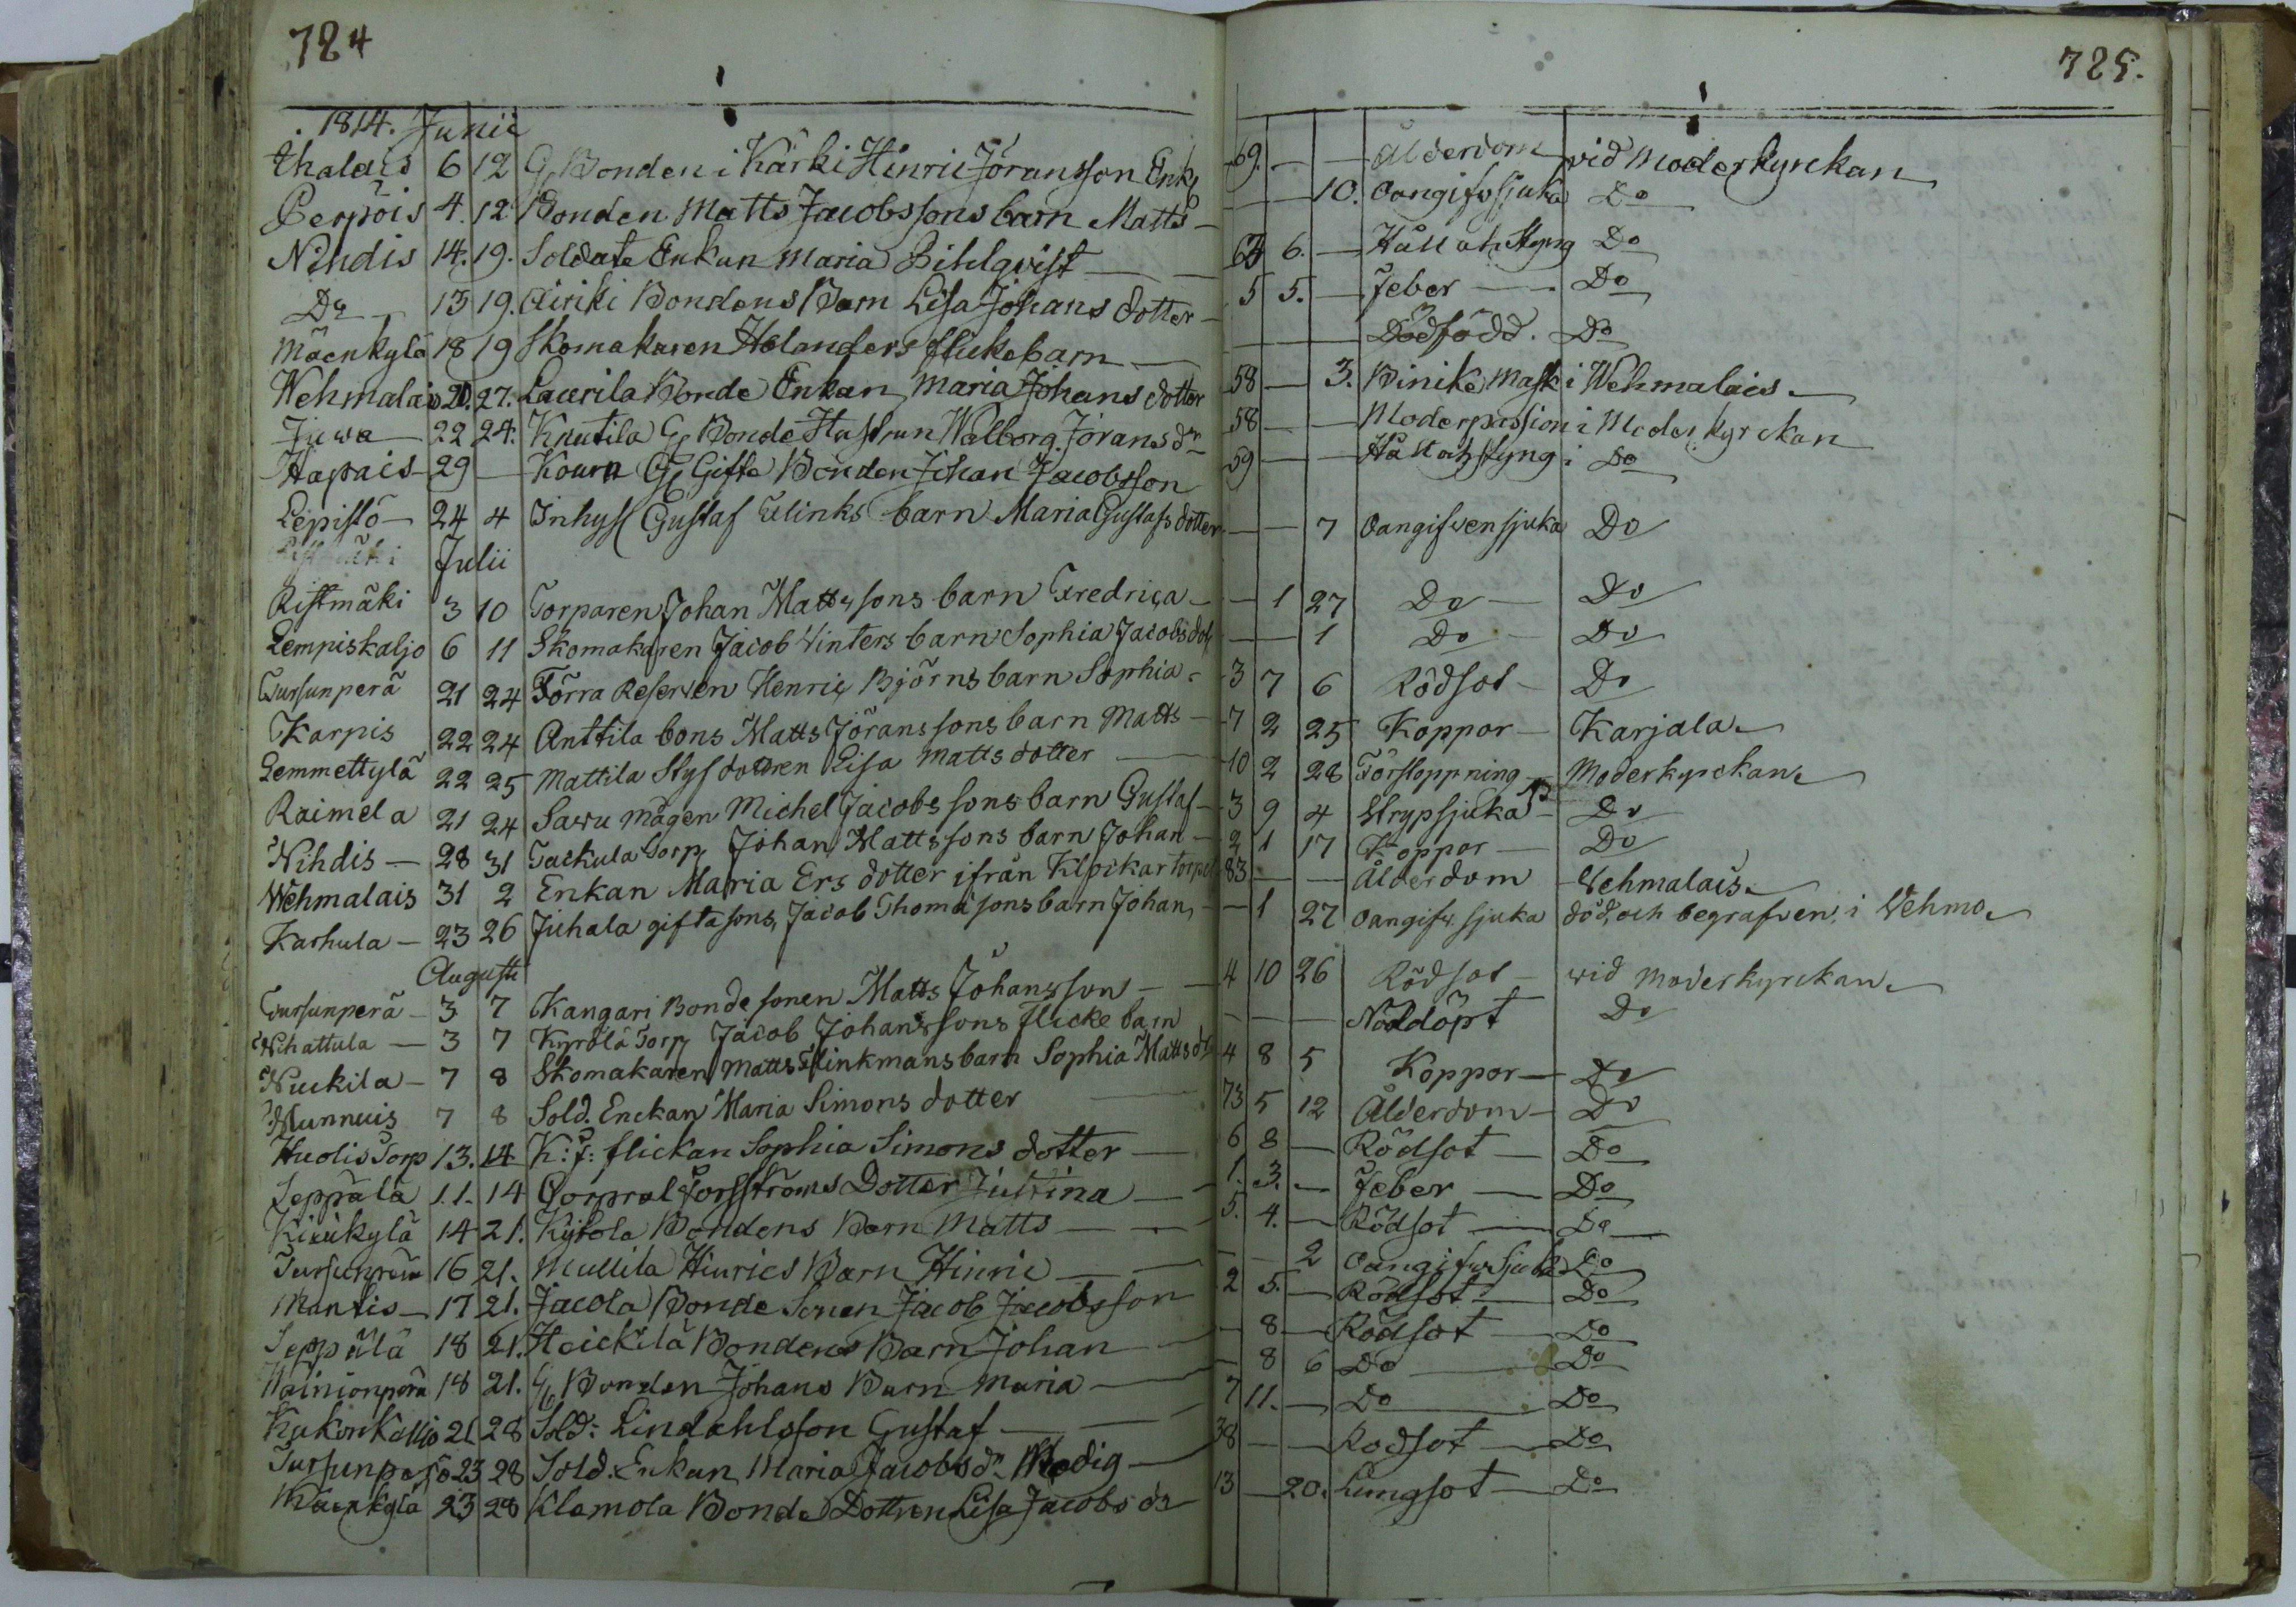 724
1814. Junii
thalais 6 12 G. Bonden i Kärki Hinric Jöransson Enk.
Perpöis 4. 12 Bonden Matts Jacobssons barn Matts -
Nihdis 14. 19. Soldate Enkan Maria Pihlqvist
Do 13 19. Äiriki Bondens Barn Lisa Johans dotter
Mäenkylä 18 19 Skomakaren Holanders flickebarn
Wehmalais 20. 27. Laurila Bonde Enkan Maria Johans dotter
Juva 22 24. Knutila G. Bonde Hustrun Walborg Jörans dr
Hapais 29 - Kouru G. Gifte Bonden Johan Jacobsson
Lepistö - 24 4 Inhys Gustaf Flinks barn Maria Gustafs dotter
Julii
Ristmäki 3 10 Torparen Johan Mattssons barn Fredrica -
Lempiskaljo 6 11 Skomakaren Jacob Vinters barn Sophia Jacobs dot
Tursunperä 21 24 Förra Reserven Henric Björns barn Sophia -
Karpis 22 24 Anttila bons Matts Jöranssons barn Matts -
Lemmettylä 22 25 Mattila Styfdottren Lisa Matts dotter
Raimela 21 24 Savu mågen Michel Jacobssons barn Gustaf -
Nihdis - 28 31 Tackula Torp. Johan Mattssons barn Johan -
Wehmalais 31 2 Enkan Maria Ers dotter ifrån Klockar torpet
Karhula - 23 26 Juhala giftasons, Jacob Thomäsons barn Johan,
Augusti
Tursunperä - 3 7 Kangari Bonde sonen Matts Johansson -
Nihattula - 3 7 Kyrölä Torp. Jacob Johanssons flicke barn
Nuckila - 7 8 Skomakaren Matts Flinkmans barn Sophia Matts dr
Munnuis 7 8 Sold. Enckan Maria Simons dotter
Huolis Torp 13. 14 K: f: flickan Sophia Simons dotter -
Seppälä 11. 14 Corpral Forsströms Dotter Justina -
Kiukylä 14 21. Kylola Bondens Barn Matts -
Tursunperä 16 21. Mullila Hinrics Barn Hinric
Mantis - 17 21. Jacola Bonde Sonen Jacob Jacobsson
Seppälä 18 21. Heickilä Bondens Barn Johan
Wäinionperä 18 21. G. Bonden Johans Barn Maria -
Kukonkallio 21 28 Sold: Lindahlsson Gustaf -
Tursunperä 23 28 Sold. Enkan Maria Jacobs dr Modig -
Mäenkylä 23 28 Klemola Bonde Dottren Lisa Jacobs dr
725.
69. - - Ålderdom vid Moderkyrckan
- - 10. Oangifvsjuka Do
63 6. - Håll och Styng Do
5 5. - Feber - Do
Dödfödd. Do
58 - 3. Binike Mask i Wehmalais
58 - - Moderpassion i Moder kyrckan
59 - - Håll och styng i Do
- - 7 Oangifvensjuka Do
- 1 27 Do - Do
- - 1 Do - Do
3 7 6 Rödsot - Do
7 2 25 Koppor - Karjala
10 2 28 Förstoppning - Moderkyrckan
3 9 4 Strypsjuka - Do
2 1 17 Koppor - Do
83 - - Ålderdom Vehmalais
- 1 27 oangifv. sjuka död, och begrafven, i Vehmo
4 10 26 Rödsot - vid Moderkyrckan
- - - Nöddöpt Do
4 8 5 Koppor - Do
73 5 12 Ålderdom - Do
6 8 - Rödsot - Do
1. 3. - Feber - Do
5. 4. - Rödsot - Do
- - 2 Oangifven sjuka Do
2 5. - Rödsot - Do
- 8 - Rödsot - Do
- 8 6 Do - Do
7 11. - Do Do
38 - - Rodsot - Do
13 - 20. Lungsot - Do